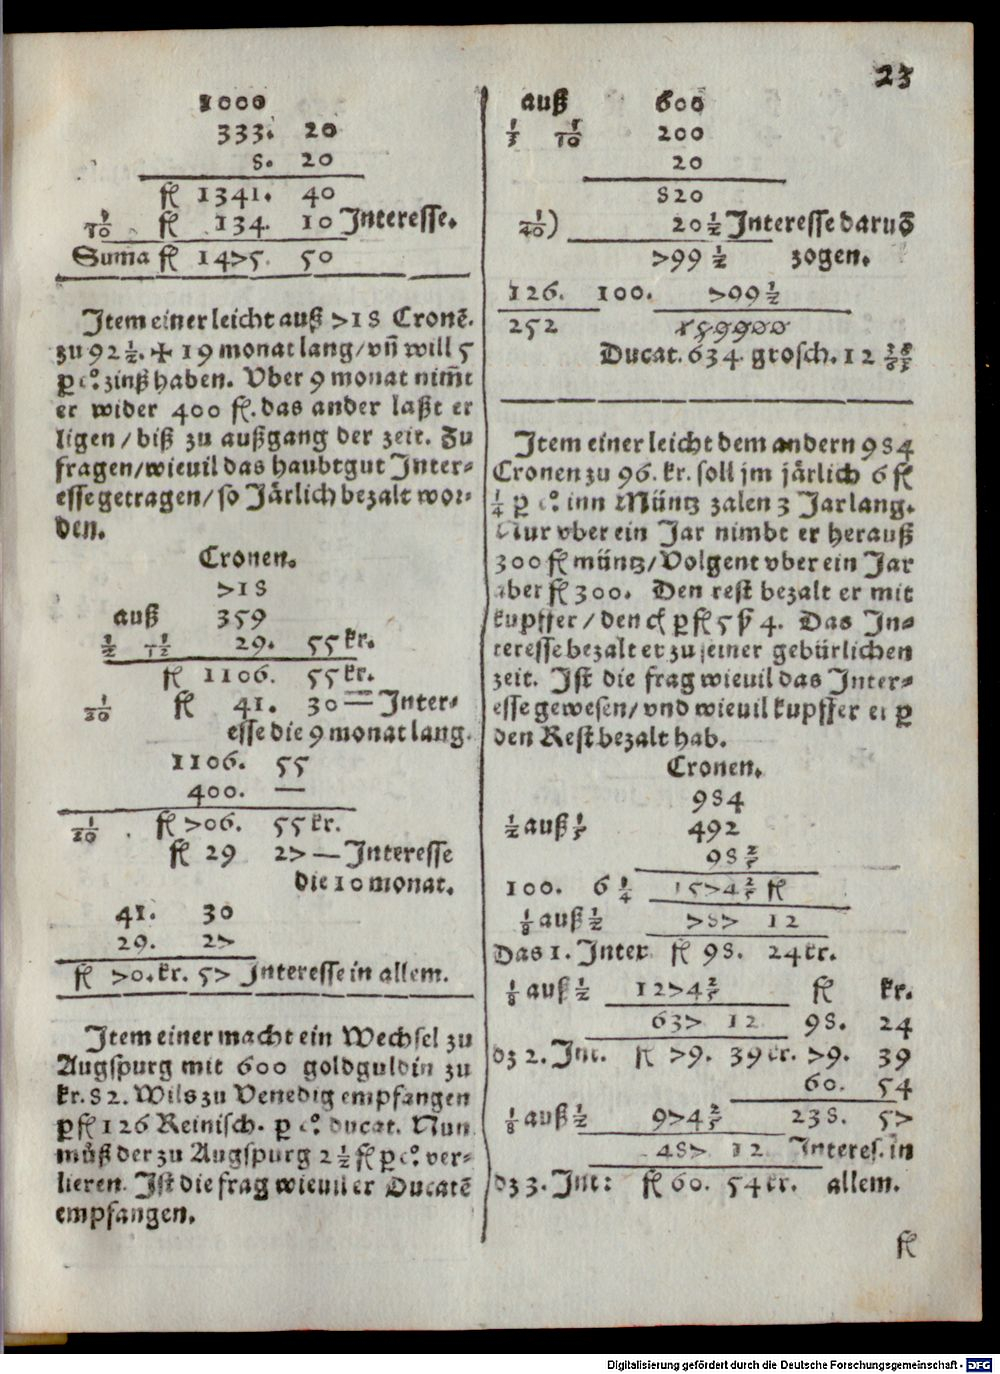 23
1000
333. 20
8. 20
fl 1341. 40
1/10 fl 134. 10 Interesse.
Suma fl 1475. 50
Item einer leicht auß 718 Cronē.
zu 92 1/2. + 19 monat lang/vñ will 5
p co zinß haben. Vber 9 monat nim̄t
er wider 400 fl. das ander laßt er
ligen/biß zu außgang der zeit. Zu
fragen/wieuil das haubtgut Inter=
esse getragen/so Järlich bezalt wor=
den.
Cronen.
718
auß 359
1/2 1/12 29. 55 kr.
fl 1106. 55 kr.
1/20 fl 41. 30 — Inter=
esse die 9 monat lang.
1106. 55
400. —
1/20 fl 706. 55 kr.
fl 29 27 — Interesse
die 10 monat.
41. 30
29. 27
fl 70. kr. 57 Interesse in allem.
Item einer macht ein Wechsel zu
Augspurg mit 600 goldguldin zu
kr. 82. Wils zu Venedig empfangen
p fl 126 Reinisch. p co ducat. Nun
můß der zu Augspurg 2 1/2 fl p co ver=
lieren. Ist die frag wieuil er Ducatē
empfangen.
auß 600
1/3 1/10 200
20
820
1/40) 20 1/2 Interesse daruō
799 1/2 zogen.
126. 100. 799 1/2
252 159900
Ducat. 634. grosch. 12
Item einer leicht dem andern 984
Cronen zu 96. kr. soll jm järlich 6 fl
1/4 p co inn Müntz zalen 3 Jar lang.
Nur vber ein Jar nimbt er herauß
300 fl müntz/Volgent vber ein Jar
aber fl 300. Den rest bezalt er mit
kupffer/den c p fl 5 ß 4. Das In=
teresse bezalt er zu seiner gebürlichen
zeit. Ist die frag wieuil das Inter=
esse gewesen/vnd wieuil kupffer er p
den Rest bezalt hab.
Cronen.
984
1/2 auß 1/5 492
98 2/5
100. 6 1/4 1574 2/5 fl
1/8 auß 1/2 787 12
Das 1. Inter. fl 98. 24 kr.
1/8 auß 1/2 1274 2/5 fl kr.
637 12 98. 24
dz 2. Int. fl 79. 39 kr. 79. 39
60. 54
1/8 auß 1/2 974 2/5 238. 57
487 12 Interes. in
dz 3. Int: fl 60. 54 kr. allem.
fl
Digitalisierung gefördert durch die Deutsche Forschungsgemeinschaft - DFG